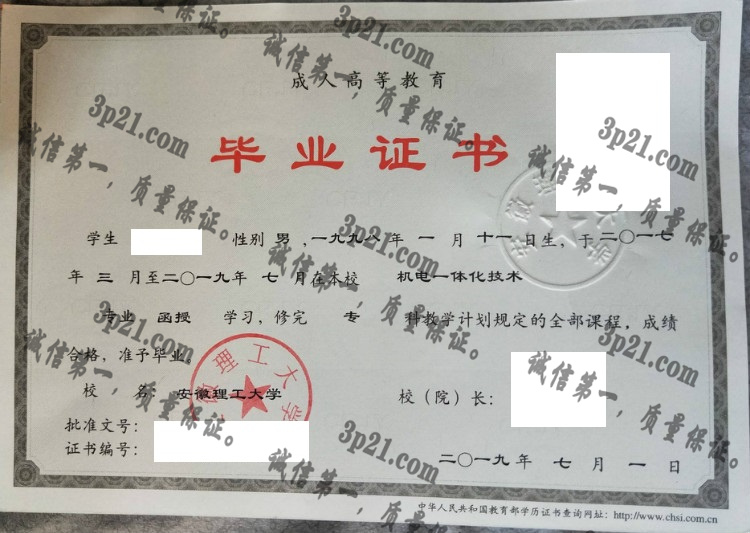 成人高等教育
毕业证书
学生 性别 男 ,一九九八年 一 月 十一日生，于 二〇一七
年 三 月至二〇一九年 七 月在本校 机电一体化技术
专业 函授 学习，修完 专 科教学计划规定的全部课程，成绩
合格，准予毕业。
校 名： 安徽理工大学 校（院）长：
批准文号：
证书编号：
二〇一九年 七 月 一 日
中华人民共和国教育部学历证书查询网址：http://www.chsi.com.cn
安徽理工大学
3p21.com
诚信第一，质量保证。
3p21.com
诚信第一，质量保证。
3p21.com
诚信第一，质量保证。
3p21.com
诚信第一，质量保证。
3p21.com
诚信第一，质量保证。
3p21.com
诚信第一，质量保证。
3p21.com
诚信第一，质量保证。
3p21.com
诚信第一，质量保证。